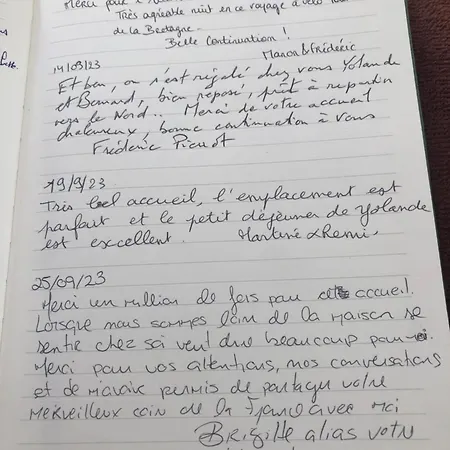 Merci pour l'
Très agréable nuit en ce voyage à vélo
de la Bretagne.
Belle Continuation !
Manon & Frédéric
14/09/23
Et ben, on s'est régalé chez vous Yolande
et Bernard, bien reposé, prêt à repartir
vers le Nord... Merci de votre accueil
chaleureux, bonne continuation à vous
Frédéric
19/9/23
Très bel accueil, l'emplacement est
parfait et le petit déjeuner de Yolande
est excellent. Martine & Remi.
25/09/23
Merci un million de fois pour cet accueil.
Lorsque nous sommes loin de la maison se
sentir chez soi veut dire beaucoup pour moi.
Merci pour vos attentions, nos conversations
et de m'avoir permis de partager votre
merveilleux coin de la France avec moi
Brigitte alias votre